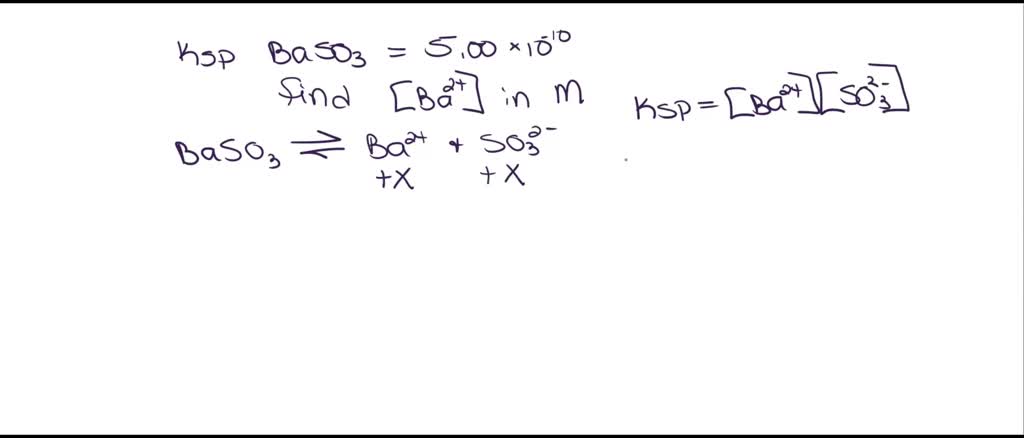 Ksp BaSO₃ = 5.00 × 10⁻¹⁰
find [Ba²⁺] in M
Ksp = [Ba²⁺][SO₃²⁻]
BaSO₃ ⇌ Ba²⁺ + SO₃²⁻
+X +X